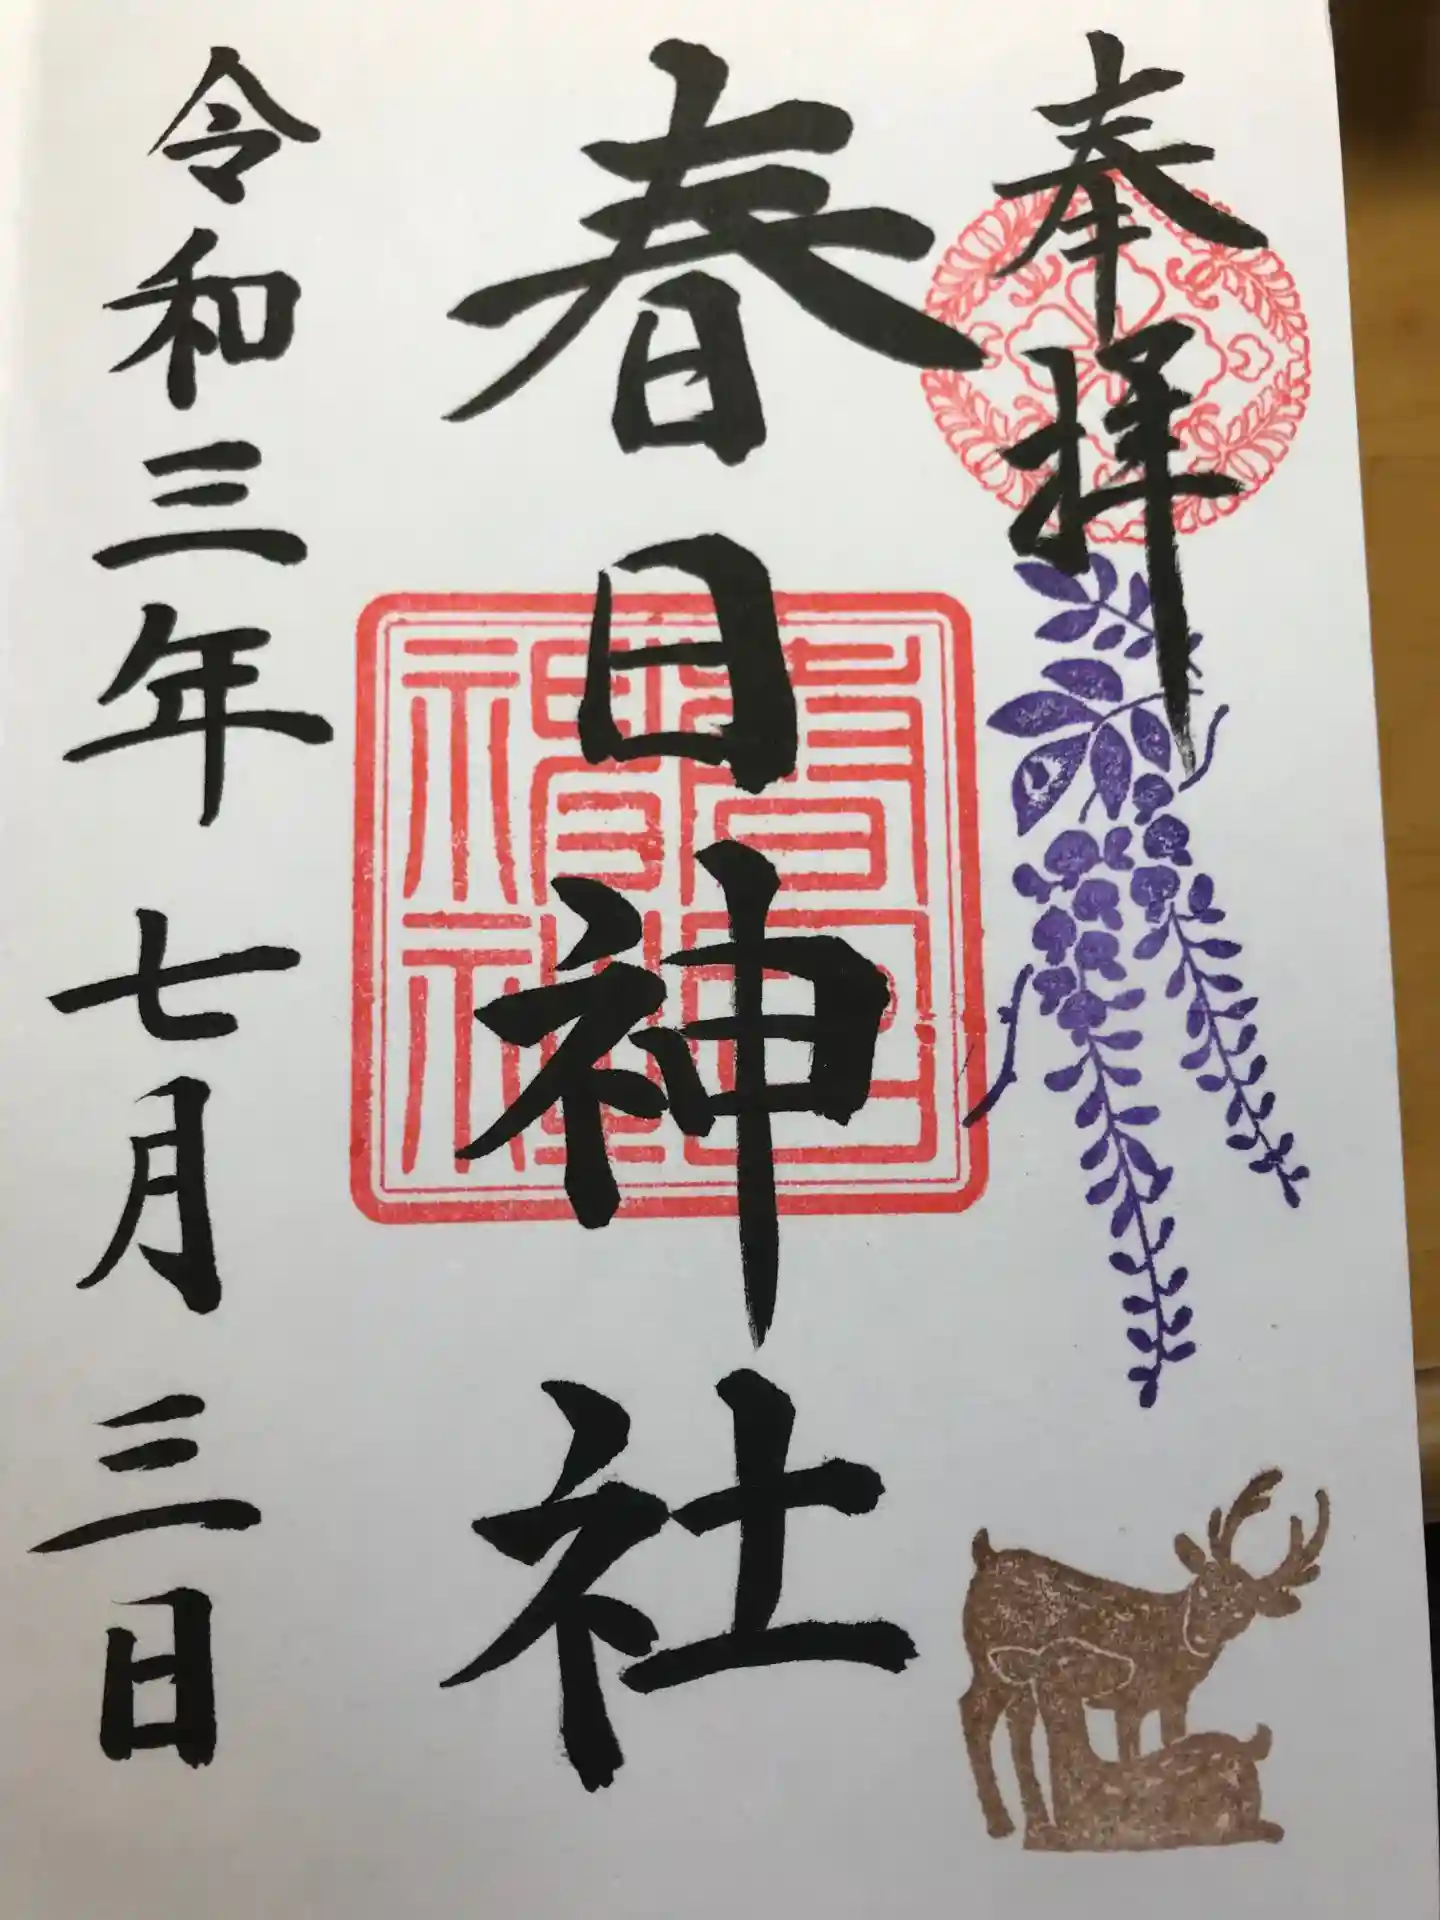 奉拝
春日神社
春日神社
令和三年七月三日